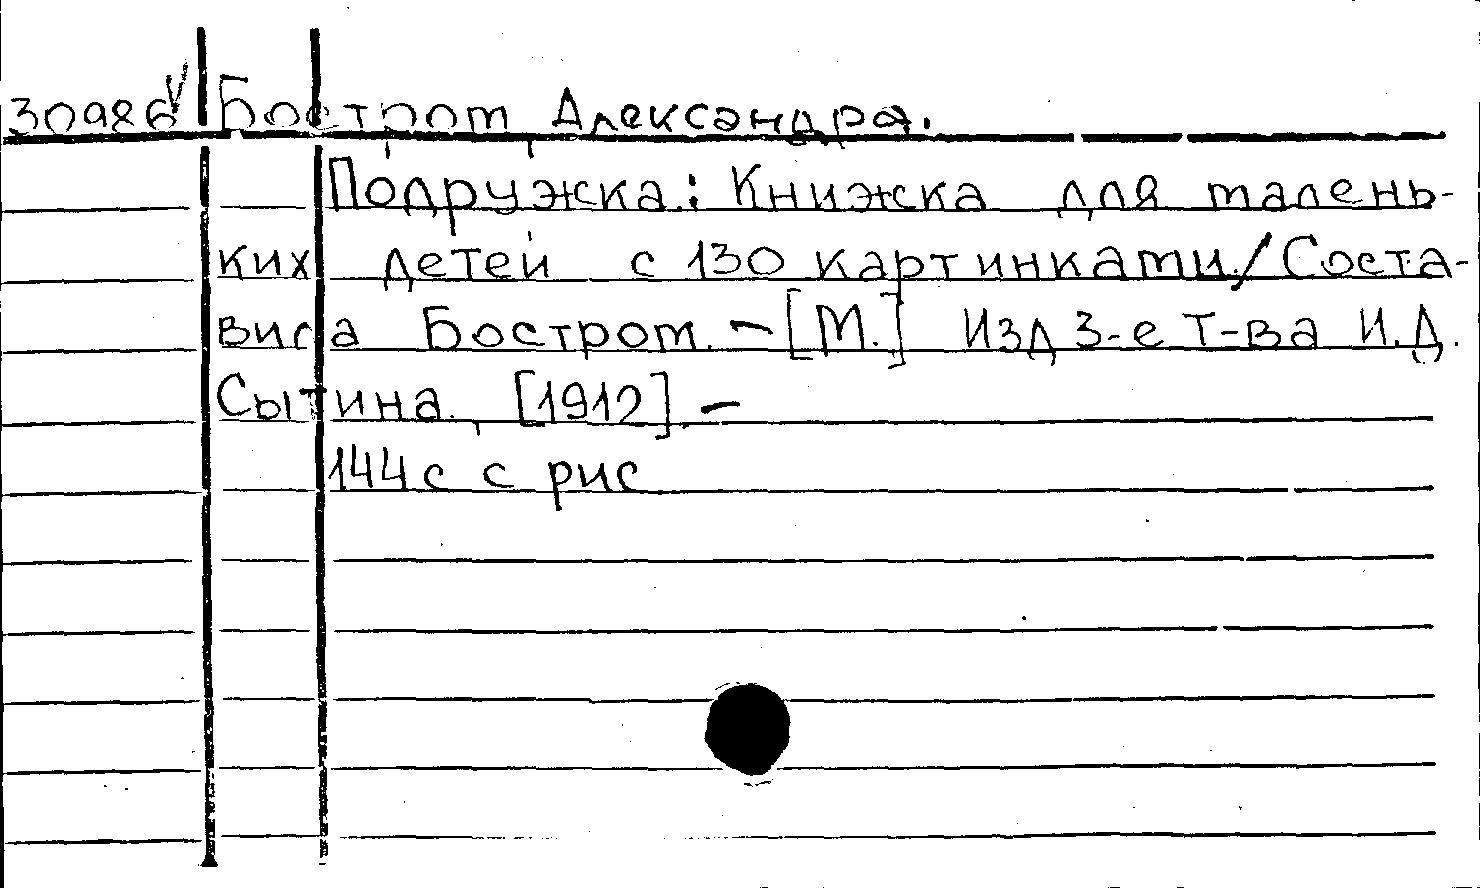 30986 Бостром Александра.
Подружка: Книжка для малень-
ких детей с 130 картинками / Соста-
вила Бостром. - [М.] Изд 3-е Т-ва И.Д.
Сытина. [1912] -
144с с рис